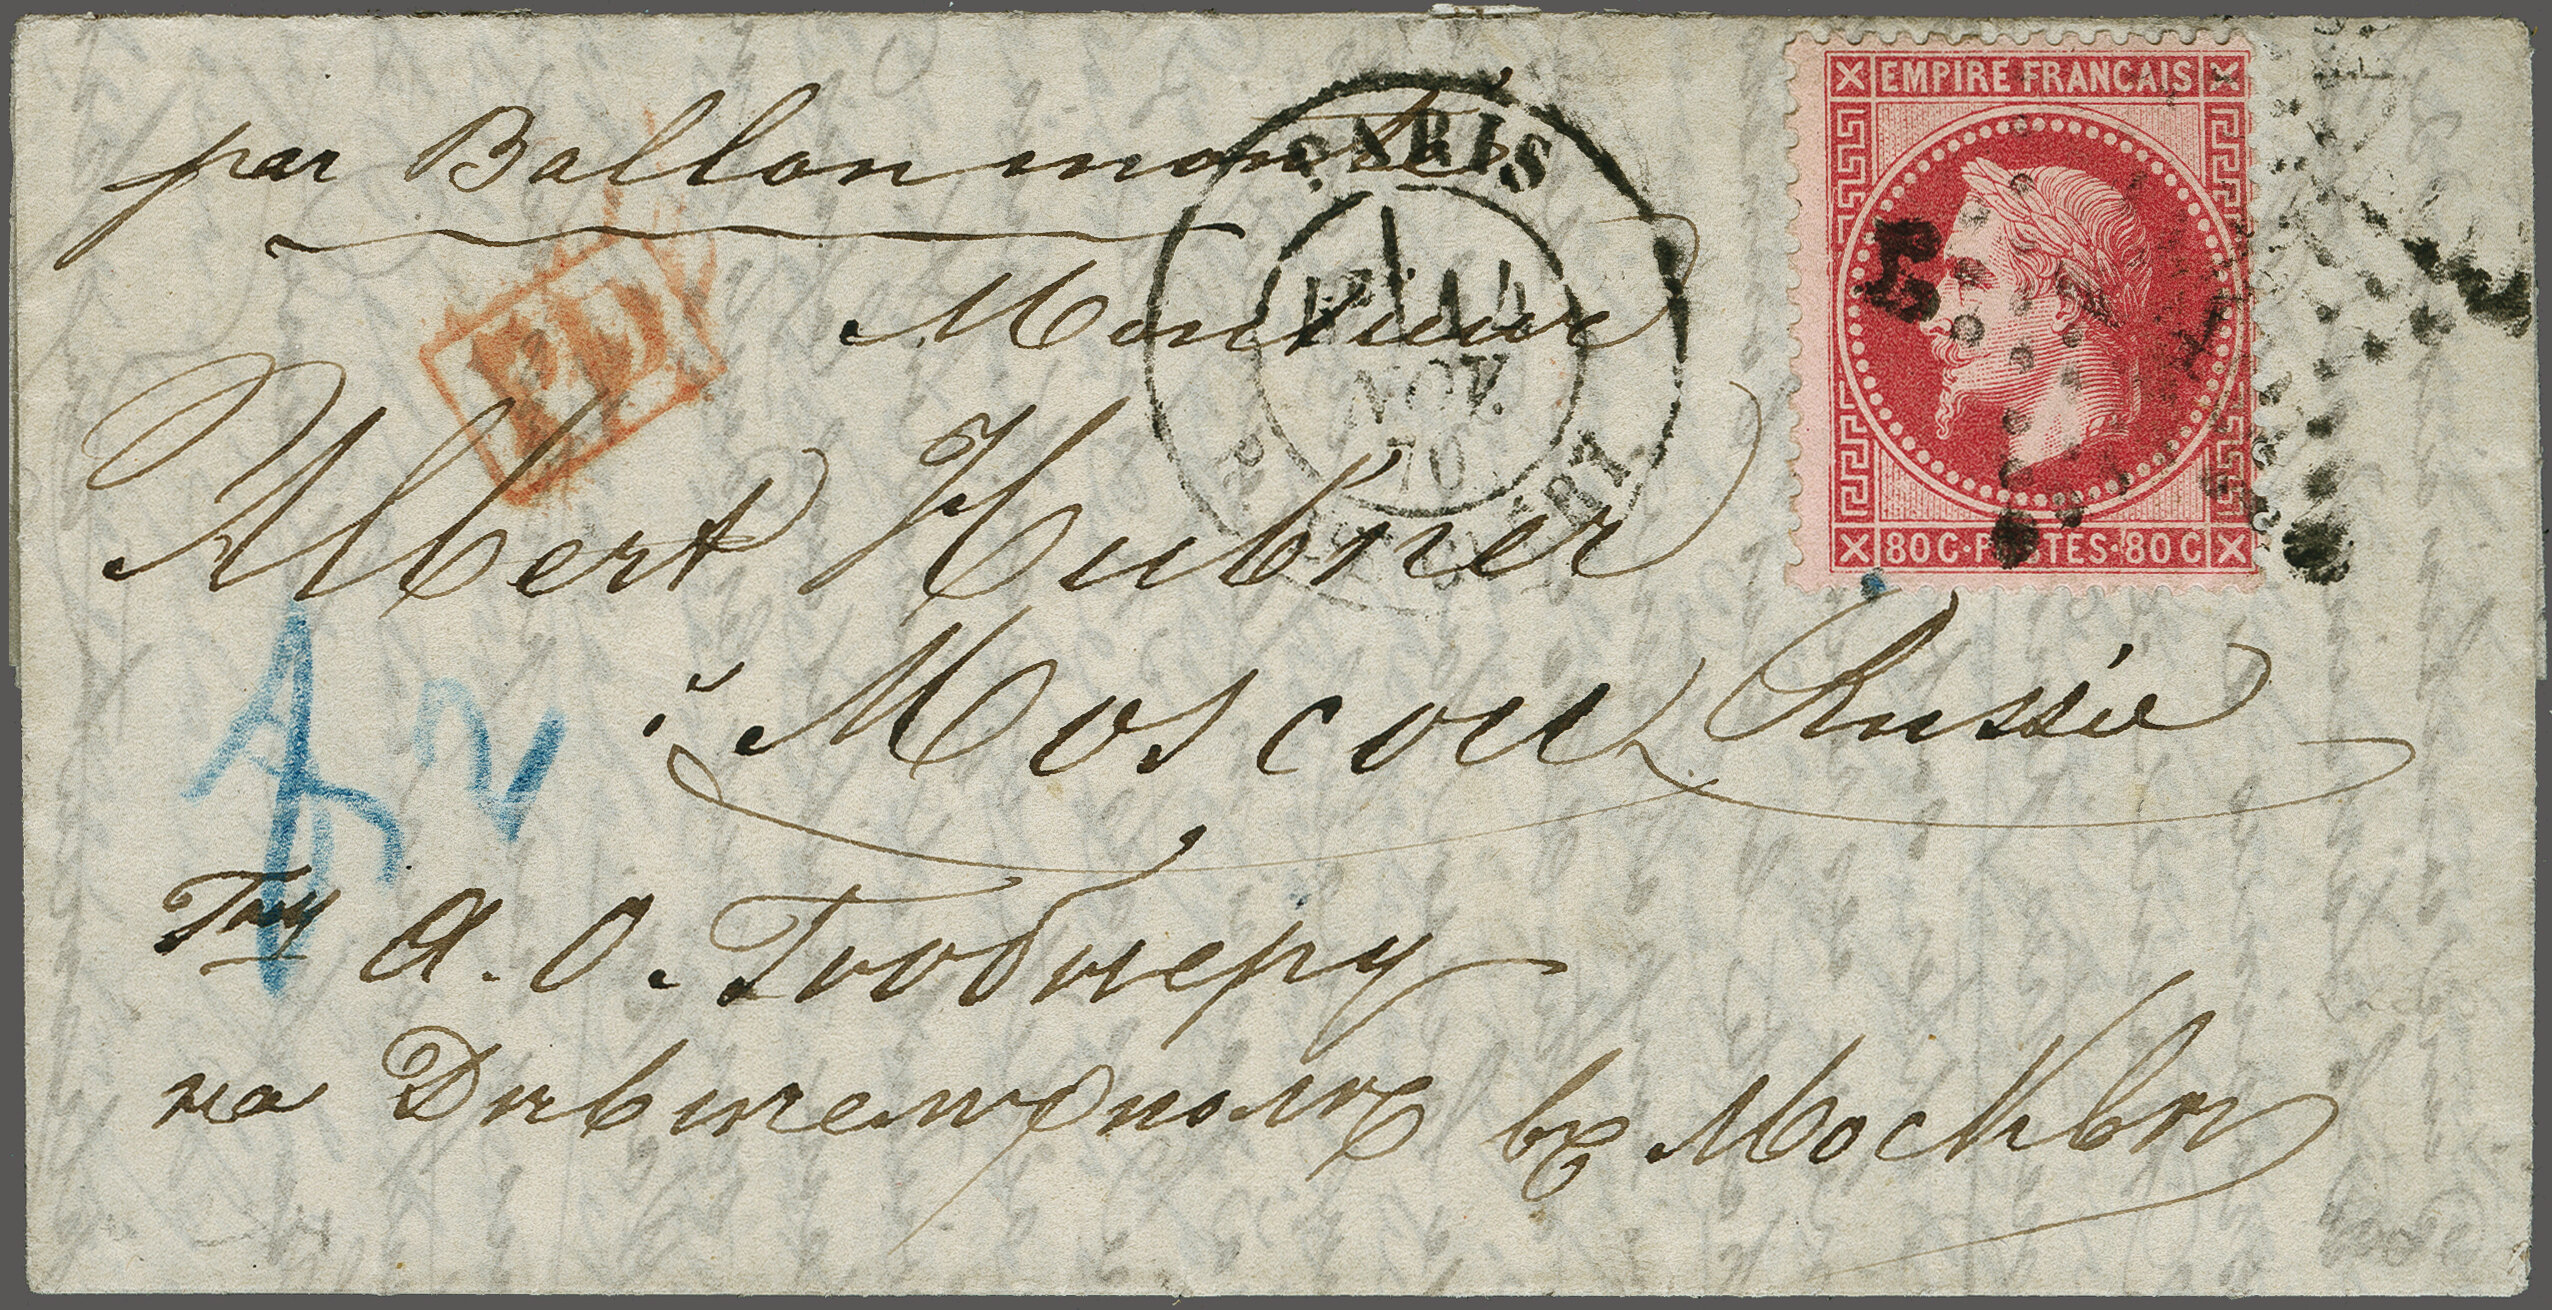 par Ballon monté
PARIS
14
NOV.
70
EMPIRE FRANCAIS
80 C·POSTES·80 C
PD
Monsieur
Albert Hubner
à Moscou Russie
Гну А. О. Гюбнеру
на Дѣвичемъ полѣ въ Москвѣ